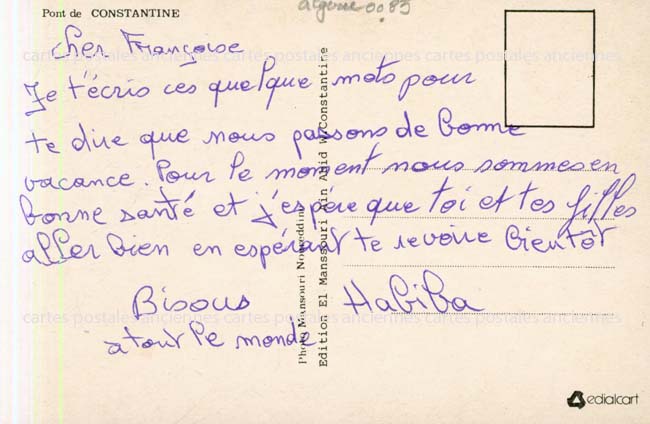 Pont de CONSTANTINE
algerie0085
Cher Françoise
Je t'écris ces quelque mots pour
te dire que nous passons de bonne
vacance. Pour le moment nous sommes en
bonne santé et j'espère que toi et tes filles
aller bien en espérant te revoire bientôt
Bisous Habiba
a tout le monde
Photo Mansouri Noureddine
Edition El Manssouri Ain Abid W/Constantine
cartes postales anciennes cartes postales anciennes cartes postales anciennes
cartes postales anciennes cartes postales anciennes cartes postales anciennes
cartes postales anciennes cartes postales anciennes cartes postales anciennes
edialcart